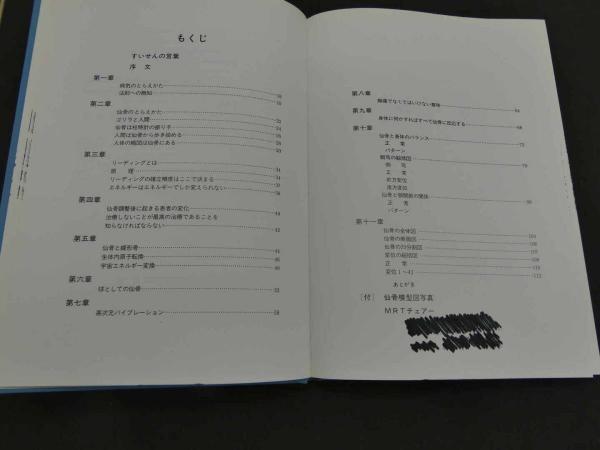 もくじ
すいせんの言葉
序 文
第一章
病気のとらえかた
法則への無知
第二章
仙骨のとらえかた
ゴリラと人間
仙骨は柱時計の振り子
人間は仙骨から歩き始める
人体の縮図は仙骨にある
第三章
リーディングとは
原 理
リーディングの確立精度はここで決まる
エネルギーはエネルギーでしか変えられない
第四章
仙骨調整後に起きる患者の変化
治療しないことが最高の治療であることを
知らなければならない
第五章
仙骨と蝶形骨
生体内原子転換
宇宙エネルギー変換
第六章
球としての仙骨
第七章
高次元バイブレーション
第八章
無痛でなくてはいけない意味
第九章
身体に何かすればすべて仙骨に反応する
第十章
仙骨と身体のバランス
正 常
パターン
正 常
前方変位
後方変位
仙骨と顎関節の関係
正 常
パターン
第十一章
仙骨の全体図
仙骨の断面図
仙骨の39分割図
変位の縮図
正 常
変位1〜41
あとがき
〔付〕 仙骨模型図写真
ＭＲＴチェアー